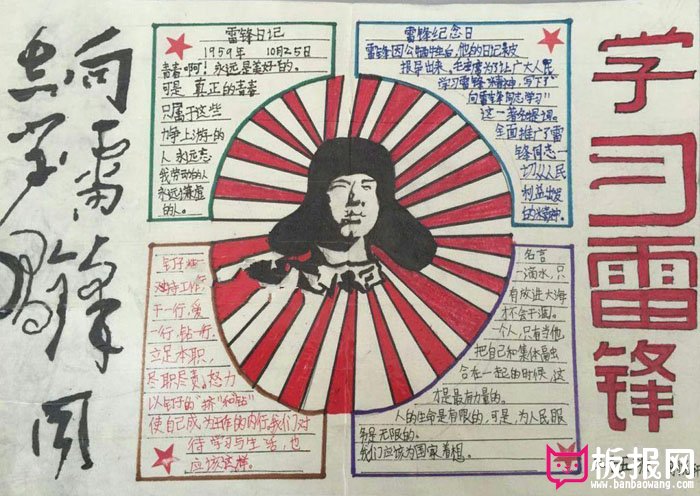 向雷锋同
志学习
雷锋日记
1959年 10月25日
青春啊！永远是美好的。
可是 真正的青春
只属于这些
力争上游的
人 永远忘
我劳动的人
永远谦虚
的人。
雷锋纪念日
雷锋因公牺牲后，他的日记被
报导出来，毛主席为了让广大人民
学习雷锋精神，写下了
"向雷锋同志学习"
这一著名题词。
全面推广了雷
锋同志一
切从人民
利益出发
的精神。
学习雷锋
钉子
干一行，爱
一行，钻一行，
立足本职，
尽职尽责，努力
以钉子的"挤"和"钻"
使自己成为工作的内行，我们对
待学习与生活，也
应该这样。
名言
一滴水，只
有放进大海
才不会干涸。
一个人，只有当他
把自己和集体事业
合在一起的时候，这
才是最有力量的。
人的生命是有限的，可是，为人民服
务是无限的。
我们应该为国家着想。
板报网
www.banbaowang.com